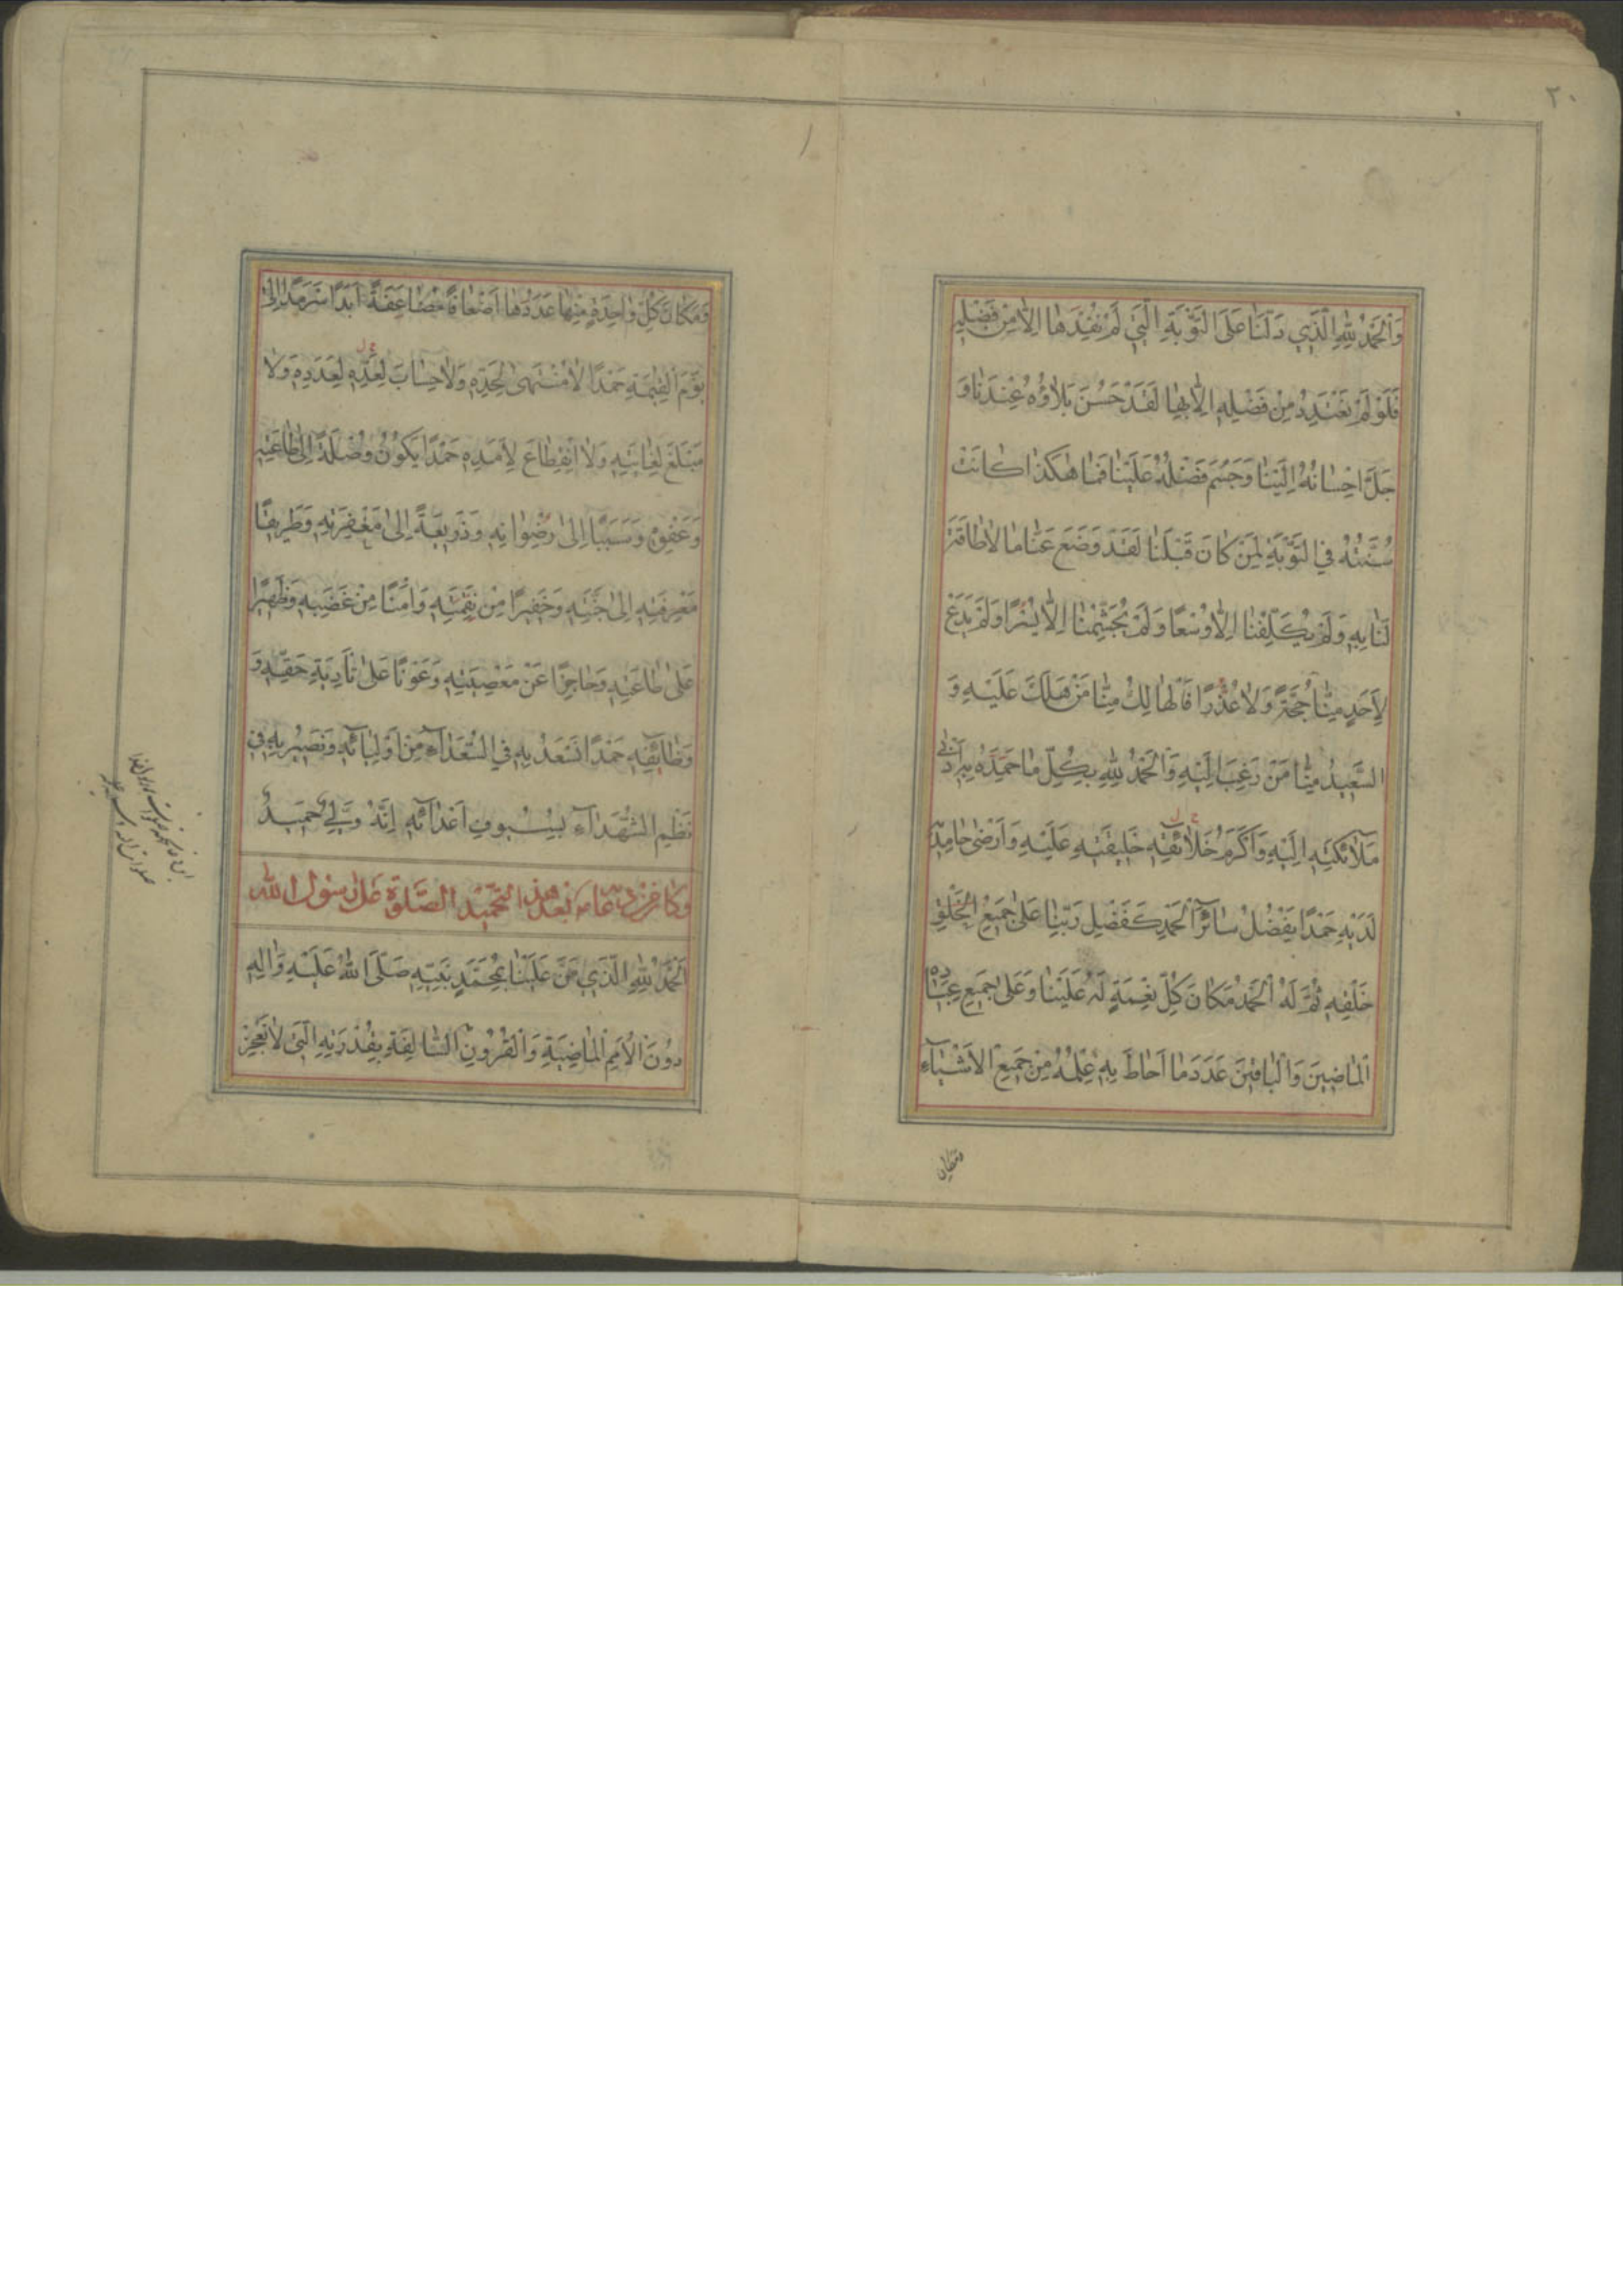 ٢٠
وَالْحَمْدُ لِلّٰهِ الَّذِي دَلَّنَا عَلَى التَّوْبَةِ الَّتِي لَمْ نُفِدْهَا اِلَّا مِنْ فَضْلِهِ
فَلَوْ لَمْ نَعْتَدِدْ مِنْ فَضْلِهِ اِلَّا بِهَا لَقَدْ حَسُنَ بَلَاؤُهُ عِنْدَنَا وَ
جَلَّ اِحْسَانُهُ اِلَيْنَا وَجَسُمَ فَضْلُهُ عَلَيْنَا فَمَا هٰكَذَا كَانَتْ
سُنَّتُهُ فِي التَّوْبَةِ لِمَنْ كَانَ قَبْلَنَا لَقَدْ وَضَعَ عَنَّا مَا لَا طَاقَةَ
لَنَا بِهِ وَلَمْ يُكَلِّفْنَا اِلَّا وُسْعًا وَلَمْ يُجَشِّمْنَا اِلَّا يُسْرًا وَلَمْ يَدَعْ
لِاَحَدٍ مِنَّا حُجَّةً وَلَا عُذْرًا فَالْهَالِكُ مِنَّا مَنْ هَلَكَ عَلَيْهِ وَ
السَّعِيدُ مِنَّا مَنْ رَغِبَ اِلَيْهِ وَالْحَمْدُ لِلّٰهِ بِكُلِّ مَا حَمِدَهُ بِهِ اَدْنٰى
مَلَائِكَتِهِ اِلَيْهِ وَاَكْرَمُ خَلِيقَتِهِ عَلَيْهِ وَاَرْضٰى حَامِدِيهِ
لَدَيْهِ حَمْدًا يَفْضُلُ سَائِرَ الْحَمْدِ كَفَضْلِ رَبِّنَا عَلٰى جَمِيعِ
خَلْقِهِ ثُمَّ لَهُ الْحَمْدُ مَكَانَ كُلِّ نِعْمَةٍ لَهُ عَلَيْنَا وَعَلٰى جَمِيعِ عِبَادِهِ
الْمَاضِينَ وَالْبَاقِينَ عَدَدَ مَا اَحَاطَ بِهِ عِلْمُهُ مِنْ جَمِيعِ الْاَشْيَآءِ
وَمَكَانَ كُلِّ وَاحِدَةٍ مِنْهَا عَدَدُهَا اَضْعَافًا مُضَاعَفَةً اَبَدًا سَرْمَدًا اِلٰى
يَوْمِ الْقِيٰمَةِ حَمْدًا لَا مُنْتَهٰى لِحَدِّهِ وَلَا حِسَابَ لِعَدِّهِ لِعَدَدِهِ وَلَا
مَبْلَغَ لِغَايَتِهِ وَلَا انْقِطَاعَ لِاَمَدِهِ حَمْدًا يَكُونُ وُصْلَةً اِلٰى طَاعَتِهِ
وَعَفْوِهِ وَسَبَبًا اِلٰى رِضْوَانِهِ وَذَرِيعَةً اِلٰى مَغْفِرَتِهِ وَطَرِيقًا
اِلٰى جَنَّتِهِ وَخَفِيرًا مِنْ نِقْمَتِهِ وَاَمْنًا مِنْ غَضَبِهِ وَظَهِيرًا
عَلٰى طَاعَتِهِ وَحَاجِزًا عَنْ مَعْصِيَتِهِ وَعَوْنًا عَلٰى تَأْدِيَةِ حَقِّهِ وَ
وَظَائِفِهِ حَمْدًا نَسْعَدُ بِهِ فِي السُّعَدَآءِ مِنْ اَوْلِيَآئِهِ وَنَصِيرُ بِهِ فِي
نَظْمِ الشُّهَدَآءِ بِسُيُوفِ اَعْدَآئِهِ اِنَّهُ وَلِيٌّ حَمِيدٌ
وَكَانَ مِنْ دُعَائِهِ بَعْدَ هٰذَا التَّحْمِيدِ الصَّلٰوةُ عَلٰى رَسُولِ اللّٰهِ
اَلْحَمْدُ لِلّٰهِ الَّذِي مَنَّ عَلَيْنَا بِمُحَمَّدٍ نَبِيِّهِ صَلَّى اللّٰهُ عَلَيْهِ وَاٰلِهِ
دُونَ الْاُمَمِ الْمَاضِيَةِ وَالْقُرُونِ السَّالِفَةِ بِقُدْرَتِهِ الَّتِي لَا تَعْجِزُ